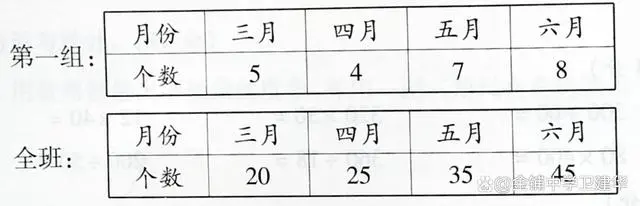 第一组：
月份 三月 四月 五月 六月
个数 5 4 7 8
全班：
月份 三月 四月 五月 六月
个数 20 25 35 45